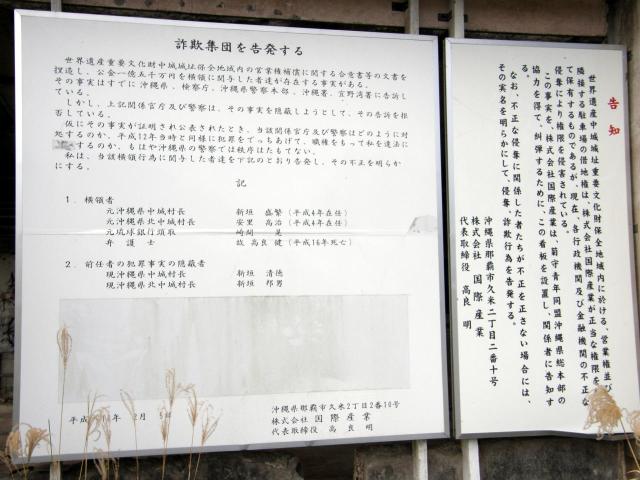 詐欺集団を告発する
世界遺産重要文化財中城城址保全地域内の営業権補償に関する合意書等の文書を
捏造し、公金一億五千万円を横領に関与した者達が存在する事実がある。
その事実はすでに沖縄県、検察庁、沖縄県警察本部、沖縄署、宜野湾署に告訴し
ている。
しかし、上記関係官庁及び警察は、その事実を隠蔽しようとして、その告訴を拒
否している。
仮にその事実が証明され公表されたとき、当該関係官庁及び警察はどのように対
処するのか、平成12年当時と同様に犯罪をでっちあげて、職権をもって私を違法に
するのか、もはや沖縄県の警察では秩序はたもてない。
私は、当該横領行為に関与した者達を下記のとおり告発し、その不正を明らか
にする。
記
1．横領者
元沖縄県中城村長 新垣 盛繁（平成4年在任）
元沖縄県北中城村長 安里 高治（平成4年在任）
元琉球銀行頭取 崎間 晃
弁護士 故 高良 健（平成16年死亡）
2．前任者の犯罪事実の隠蔽者
現沖縄県中城村長 新垣 清徳
現沖縄県北中城村長 新垣 邦男
平成 年 2月 5日
沖縄県那覇市久米2丁目2番10号
株式会社 国際産業
代表取締役 高良 明
告知
世界遺産中城城址重要文化財保全地域内に於ける、営業権並び
隣接する駐車場の借地権は、株式会社国際産業が正当な権限を
て保有するものであるが、現在、各行政機関及び金融機関の不正な
侵奪により権限を侵害されている。
この事実を、株式会社国際産業は、菊守青年同盟沖縄県総本部の
協力を得て、糾弾するために、この看板を設置し、関係者に告知す
る。
なお、不正な侵奪に関係した者たちが不正を正さない場合には、
その実名を明らかにして、侵奪、詐欺行為を告発する。
沖縄県那覇市久米二丁目二番十号
株式会社 国際産業
代表取締役 高良 明